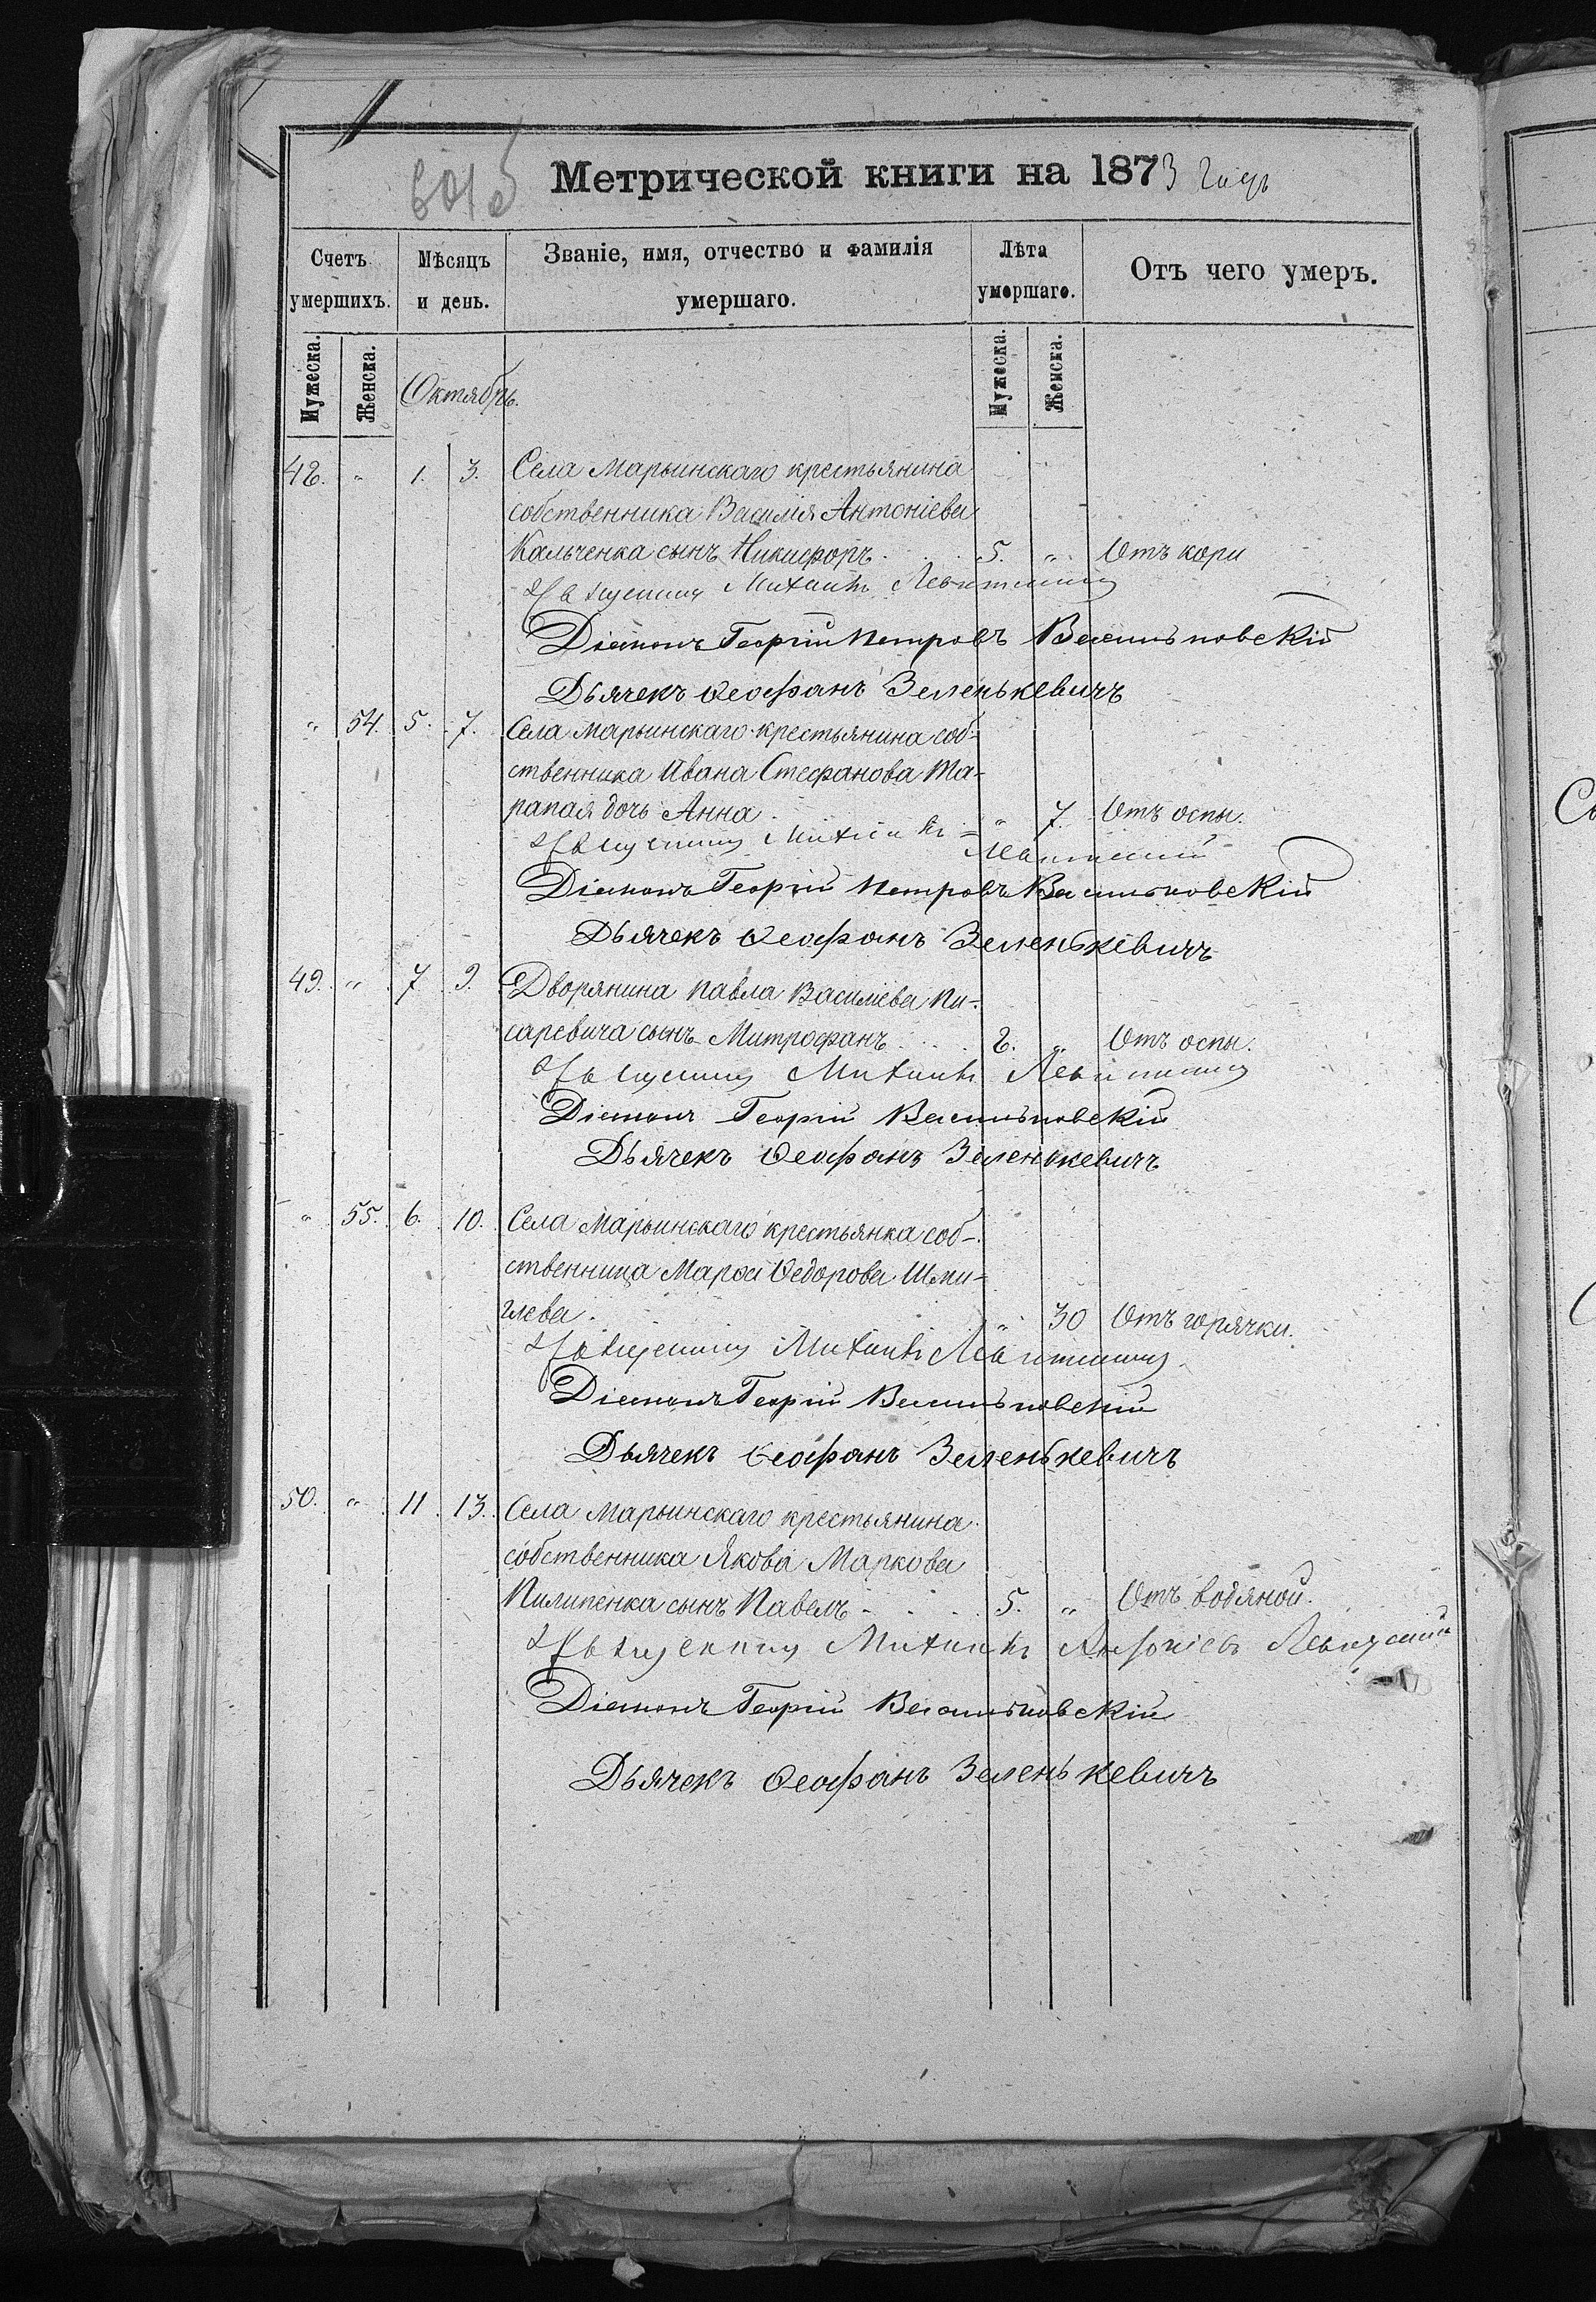 Метрической книги на 1873 годъ
Счетъ умершихъ.
Мѣсяцъ и день.
Званіе, имя, отчество и фамилія умершаго.
Лѣта умершаго.
Отъ чего умеръ.
Мужеска.
Женска.
Октябрь.
Мужеска.
Женска.
48. " 1. 3. Села Марьинскаго крестьянина
собственника Василія Антоніева
Кальченка сынъ Никифоръ 5. " Отъ кори
Священникъ Михаилъ Левитскій
Діаконъ Георгій Петровъ Васильковскій
Дьячекъ Ѳеофанъ Зеленькевичъ
" 54. 5. 7. Села Марьинскаго крестьянина соб-
ственника Ивана Стефанова Та-
рапая дочь Анна " 7. Отъ оспы.
Священникъ Михаилъ
Левитскій
Діаконъ Георгій Петровъ Васильковскій
Дьячекъ Ѳеофанъ Зеленькевичъ
49. " 7 9. Дворянина Павла Василіева Пи-
саревича сынъ Митрофанъ 2. " Отъ оспы.
Священникъ Михаилъ Левитскій
Діаконъ Георгій Васильковскій
Дьячекъ Ѳеофанъ Зеленькевичъ
" 55. 6. 10. Села Марьинскаго крестьянка соб-
ственница Марѳа Ѳедорова Шми-
глева. " 30 Отъ горячки.
Священникъ Михаилъ Левитскій
Діаконъ Георгій Васильковскій
Дьячекъ Ѳеофанъ Зеленькевичъ
50. " 11. 13. Села Марьинскаго крестьянина
собственника Якова Маркова
Пилипенка сынъ Павелъ 5. " Отъ водяной.
Священникъ Михаилъ Левитскій
Діаконъ Георгій Васильковскій
Дьячекъ Ѳеофанъ Зеленькевичъ